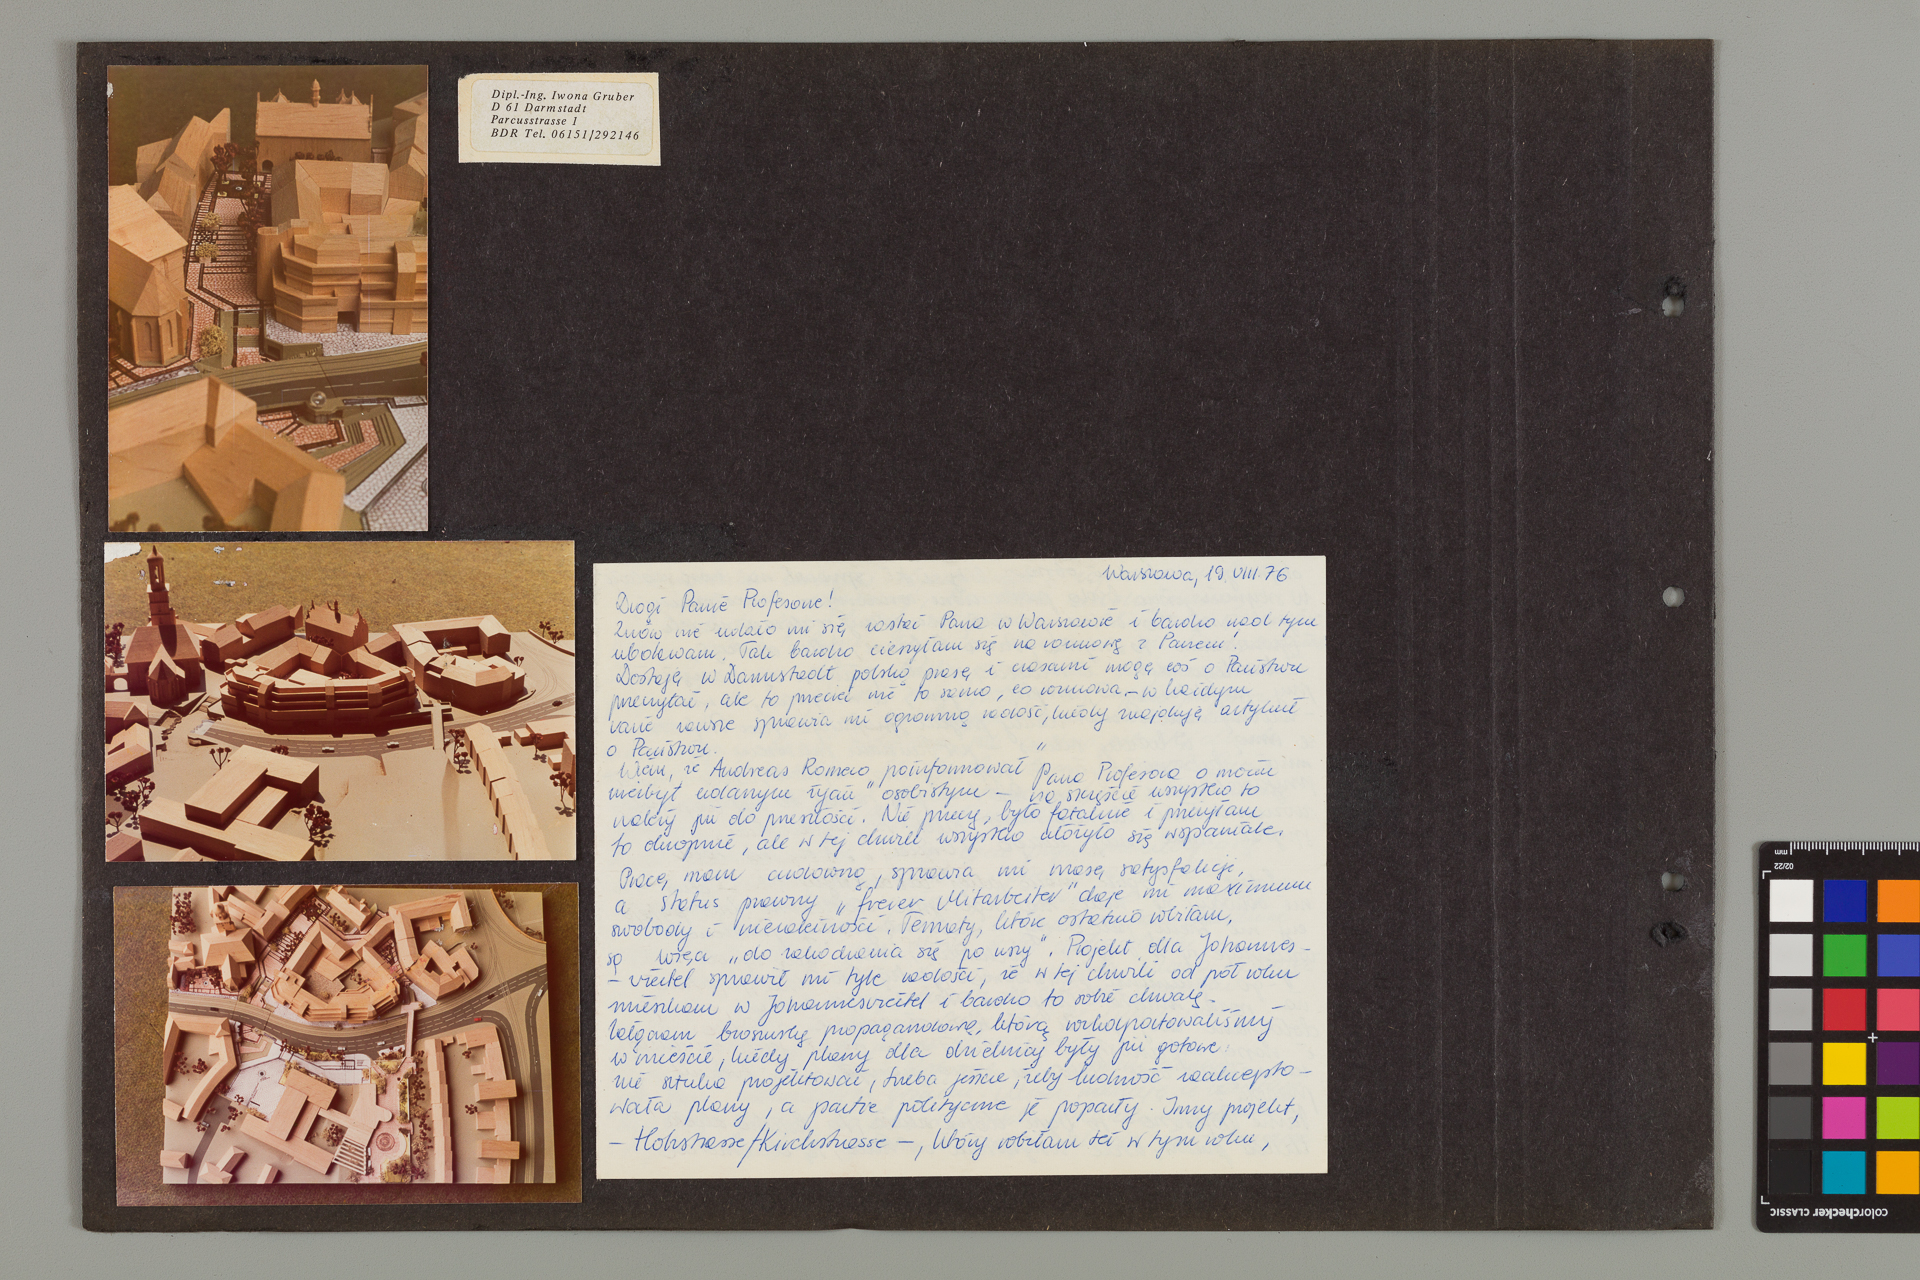 Dipl.-Ing. Iwona Gruber
D 61 Darmstadt
Parcusstrasse 1
BDR Tel. 06151/292146
Warszawa, 19 VIII 76
Drogi Panie Profesorze!
Znów nie udało mi się zastać Pana w Warszawie i bardzo nad tym
ubolewam. Tak bardzo cieszyłam się na rozmowę z Panem!
Dostaję w Darmstadt polską prasę i czasami mogę coś o Państwu
przeczytać, ale to przecież nie to samo, co rozmowa – w każdym
razie zawsze sprawia mi ogromną radość, kiedy znajduję artykuł
o Państwu.
Wiem, że Andreas Romero poinformował Pana Profesora o moim
niezbyt udanym "życiu" osobistym – na szczęście wszystko to
należy już do przeszłości. Nie przeczę, było fatalnie i przeżyłam
to okropnie, ale w tej chwili wszystko ułożyło się wspaniale.
Pracę mam cudowną, sprawia mi masę satysfakcji,
a status prawny „freier Mitarbeiter" daje mi maximum
swobody i niezależności. Tematy, które ostatnio robiłam,
są wręcz „do zakochania się po uszy". Projekt dla Johannes-
-viertel sprawił mi tyle radości, że w tej chwili od pół roku
mieszkam w Johannesviertel i bardzo to sobie chwalę.
Załączam broszurkę propagandową, którą rozkolportowaliśmy
w mieście, kiedy plany dla dzielnicy były już gotowe:
nie sztuka projektować, trzeba jeszcze, żeby ludność zaakcepto-
wała plany, a partie polityczne je poparły. Inny projekt,
– Holzstrasse/Kirchstrasse –, który robiłam też w tym roku,
colorchecker CLASSIC
mm
02/22